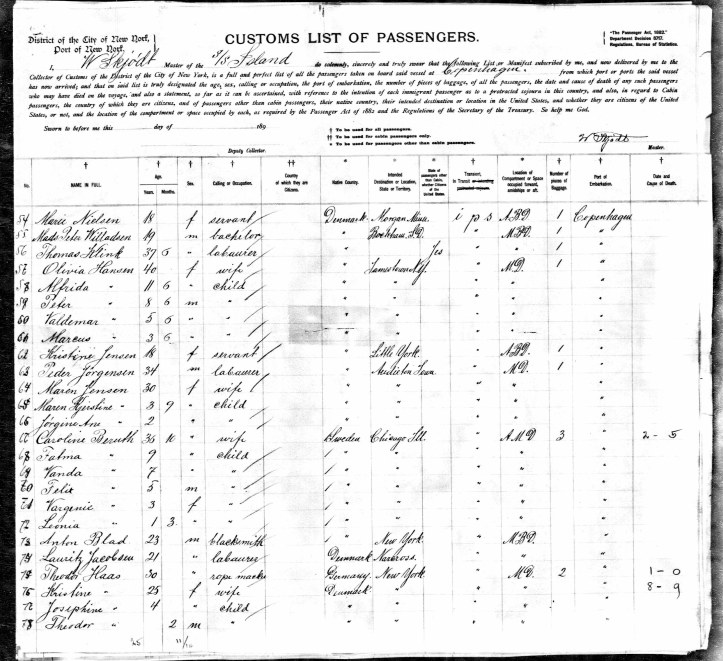 District of the City of New York,
Port of New York.
CUSTOMS LIST OF PASSENGERS.
"The Passenger Act, 1882."
Department Decision 5717.
Regulations, Bureau of Statistics.
I, W Skjödt Master of the S/S Island do solemnly, sincerely and truly swear that the following List or Manifest subscribed by me, and now delivered by me to the
Collector of Customs of the District of the City of New York, is a full and perfect list of all the passengers taken on board said vessel at Copenhagen from which port or ports the said vessel
has now arrived; and that on said list is truly designated the age, sex, calling or occupation, the port of embarkation, the number of pieces of baggage, of all the passengers, the date and cause of death of any such passengers
who may have died on the voyage, and also a statement, so far as it can be ascertained, with reference to the intention of each immigrant passenger as to a protracted sojourn in this country, and also, in regard to Cabin
passengers, the country of which they are citizens, and of passengers other than cabin passengers, their native country, their intended destination or location in the United States, and whether they are citizens of the United
States, or not, and the location of the compartment or space occupied by each, as required by the Passenger Act of 1882 and the Regulations of the Secretary of the Treasury. So help me God.
Sworn to before me this day of 189
† To be used for all passengers.
†† To be used for cabin passengers only.
* To be used for passengers other than cabin passengers.
W Skjödt
Deputy Collector.
Master.
No. NAME IN FULL. Age. Years. Months. Sex. Calling or Occupation. Country of which they are Citizens. Native Country. Intended Destination or Location, State or Territory. State of passengers other than Cabin, whether Citizens of the United States. Transient, in Transit or intending protracted sojourn. Location of Compartment or Space occupied forward, amidships or aft. Number of pieces of Baggage. Port of Embarkation. Date and Cause of Death.
54 Marie Nielsen 18 f servant Denmark Morgan Minn. i p s A.B.D 1 Copenhagen
55 Mads Peter Willadsen 19 m bachelor " " M.B.D. 1 "
56 Thomas Klink 37 6 " labaurer " Yes " 1 "
57 Olivia Hansen 40 f wife " Jamestown " M.D. 1 "
58 Alfrida " 11 6 " child " " "
59 Peter " 8 6 m " " " "
60 Valdemar " 5 6 " " " "
61 Marcus " 3 6 " " "
62 Kristine Jensen 18 f servant " Little York. A.B.D. 1 "
63 Peder Jörgensen 34 m labaurer " " M.D. 1 "
64 Maren Jensen 30 f wife " " "
65 Maren Kjerstine " 3 9 " child " " "
66 Jörgine Ane " 2 " " " " "
67 Caroline Beruth 35 10 " wife Sweden Chicago Ill. " A.M.D 3 " 2 - 5
68 Fatma " 9 " child " " "
69 Vanda " 7 " " " " "
70 Felix " 5 m " " " "
71 Varginie " 3 f " " " "
72 Leonia " 1 3 " " " " "
73 Anton Blad 23 m blacksmith " New York. " M.B.D. "
74 Lauritz Jacobsen 21 " labaurer Denmark Norcross. " " "
75 Theodor Haas 30 " rope maker Germany New York " M.D. 2 " 1 - 0
76 Kristine " 25 f wife Denmark " " 8 - 9
77 Josephine " 4 " child " " "
78 Theodor " 2 m " " " "
25 11/12